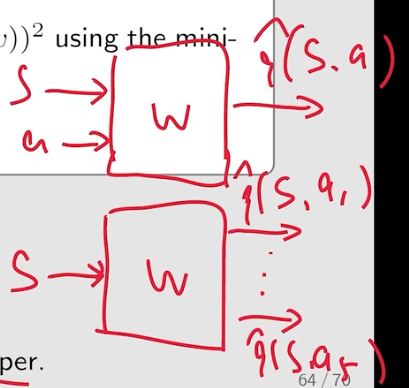 ))² using the mini-
S
a
W
q̂(S,a)
S
W
q̂(S,a₁)
⋮
q̂(S,a₅)
per.
64 / 70